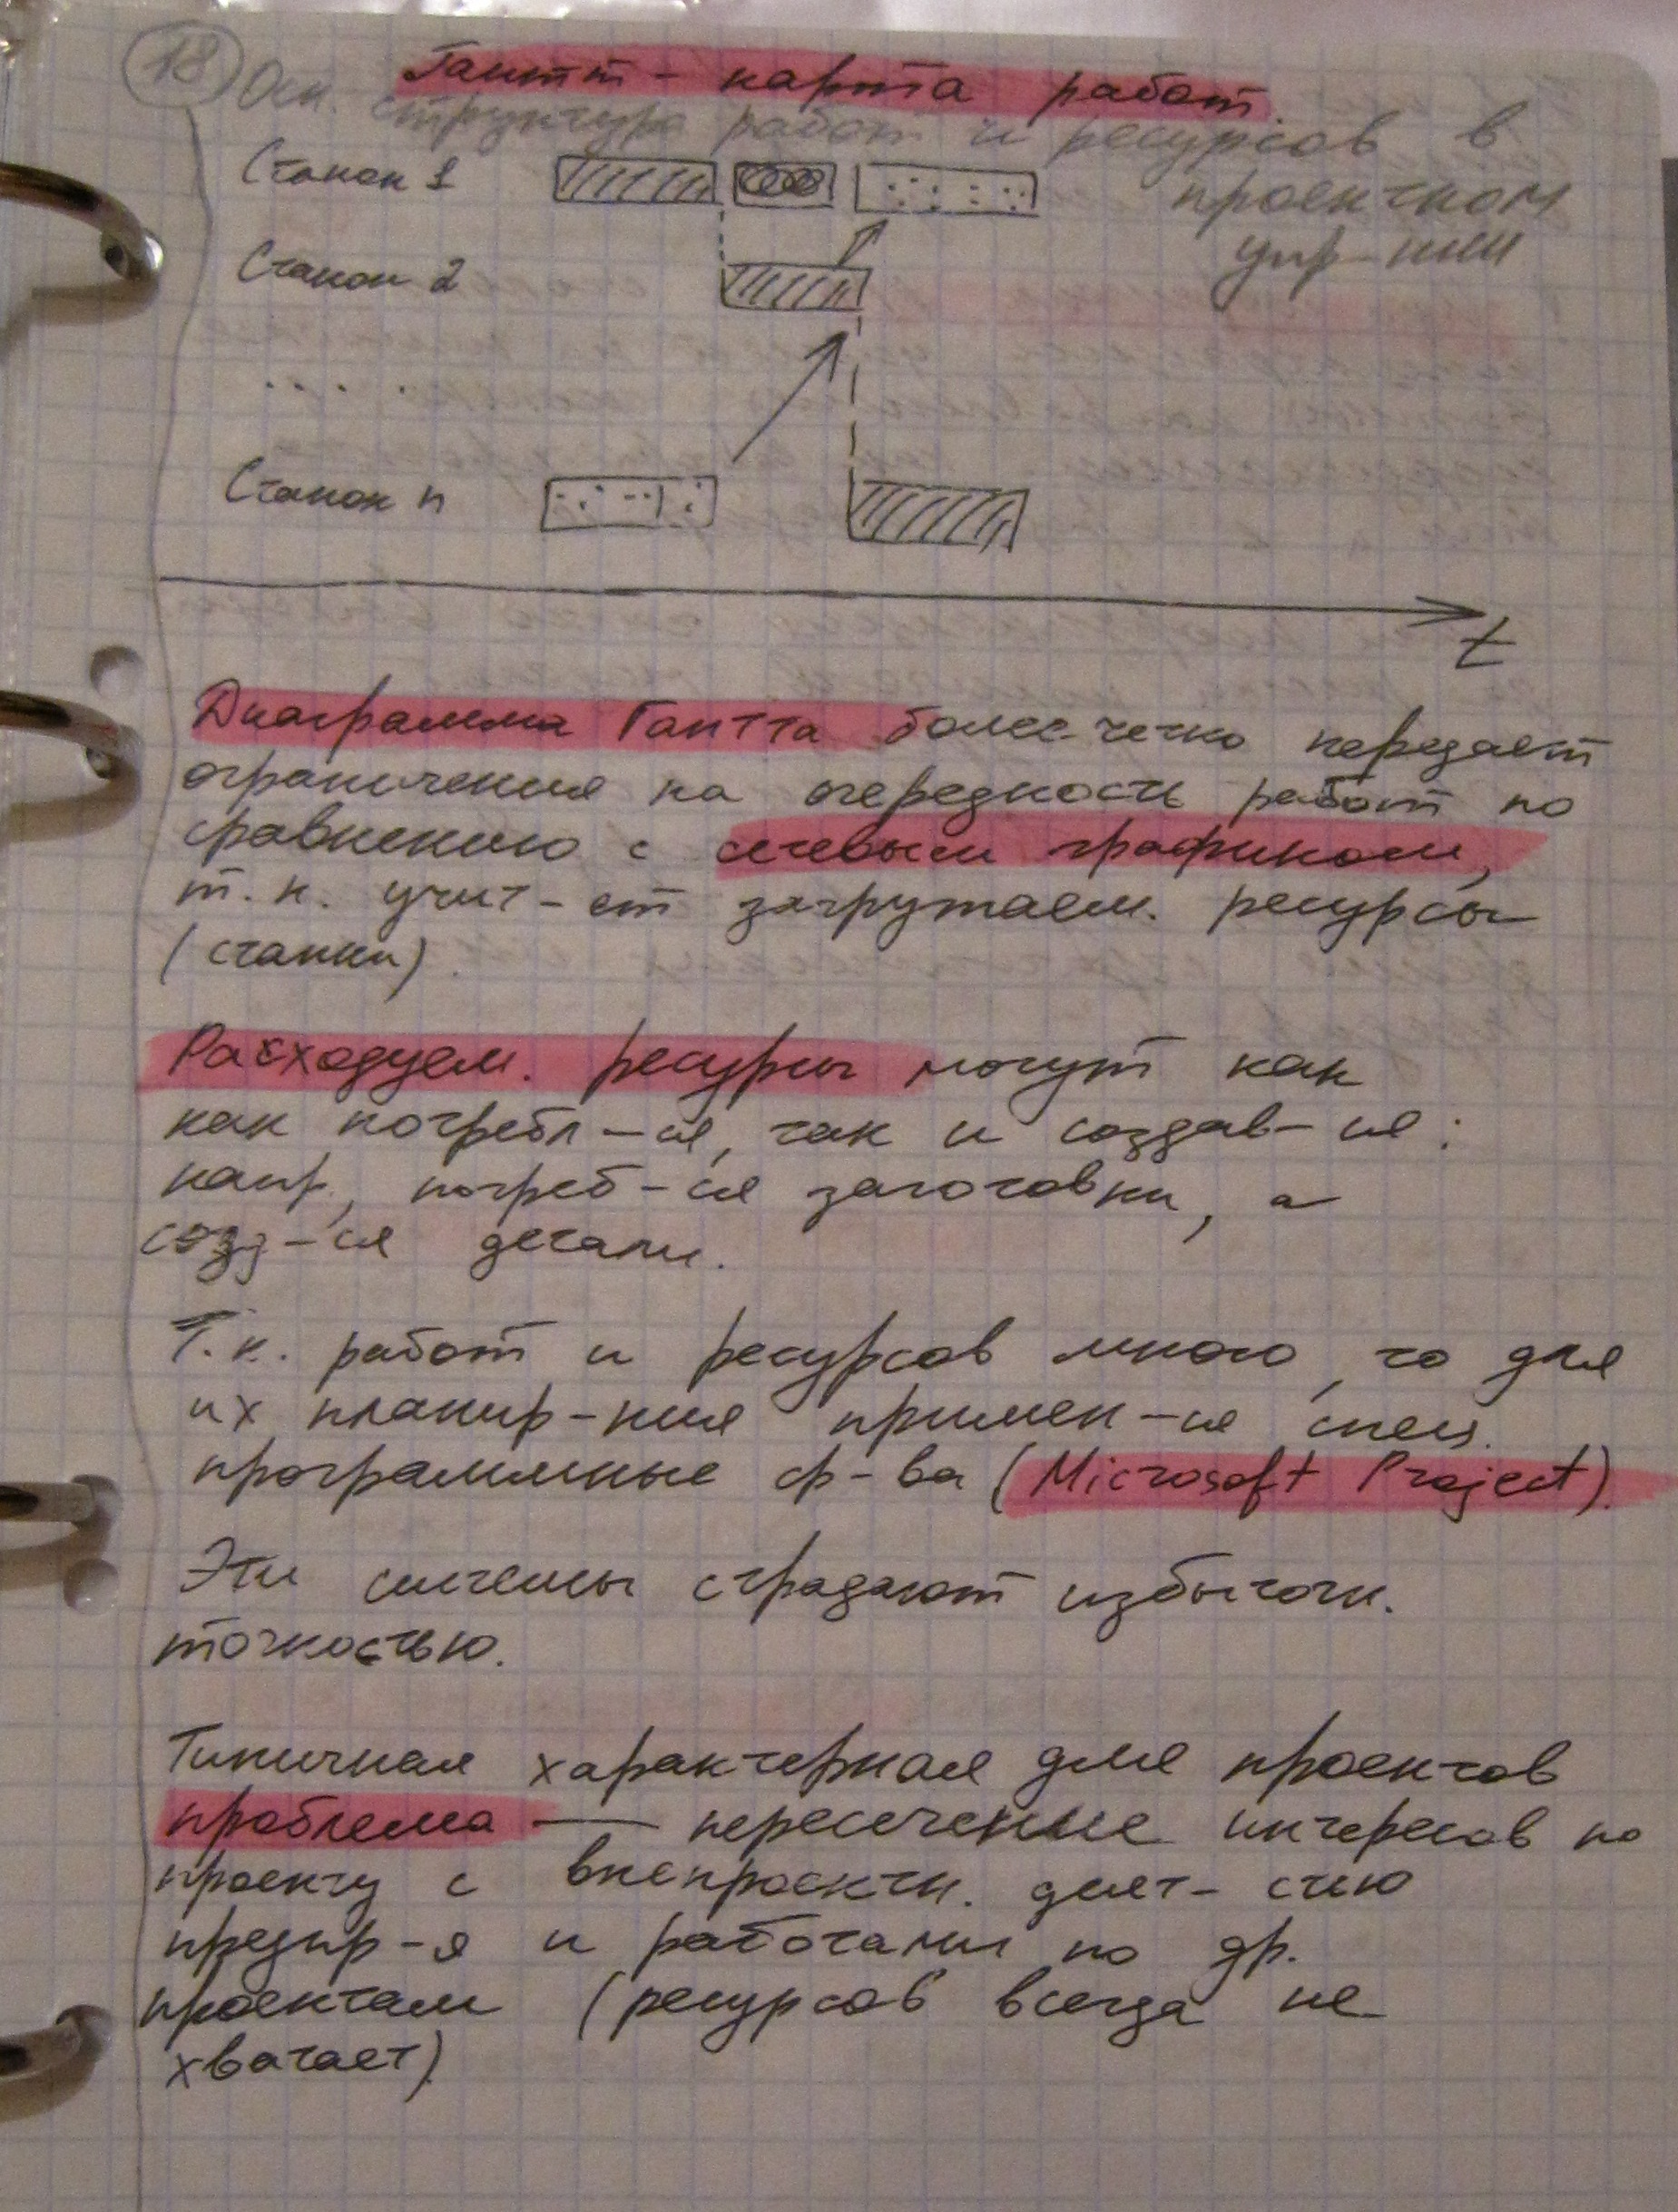 18
Гантт - карта работ
Осн. структура работ и ресурсов в
проектном
упр-нии
Станок 1
Станок 2
. . . . .
Станок n
t
Диаграмма Гантта более четко передает
ограничения на очередность работ по
сравнению с сетевым графиком,
т.к. учит-ет загружаем. ресурсы
(станки).
Расходуем. ресурсы могут как
как потребл-ся, так и создав-ся:
напр, потреб-ся заготовки, а
созд-ся детали.
Т.к. работ и ресурсов много, то для
их планир-ния примен-ся спец.
программные ср-ва (Microsoft Project).
Эти системы страдают избыточн.
точностью.
Типичная характерная для проектов
проблема — пересечение интересов по
проекту с внепроектн. деят-стью
предпр-я и работами по др.
проектам (ресурсов всегда не
хватает)